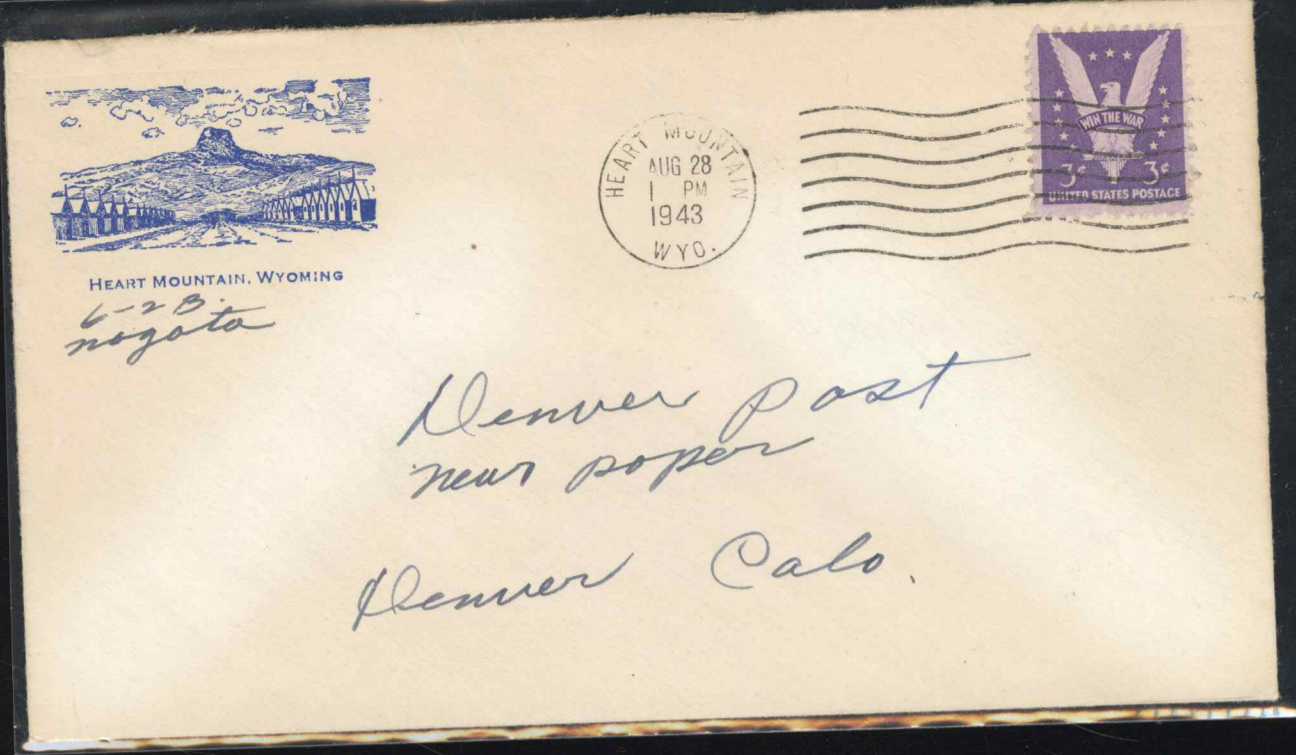 HEART MOUNTAIN, WYOMING
6-2B.
nagata
HEART MOUNTAIN
AUG 28
1 PM
1943
WYO.
WIN THE WAR
3¢ 3¢
UNITED STATES POSTAGE
Denver Post
news paper
Denver Colo.